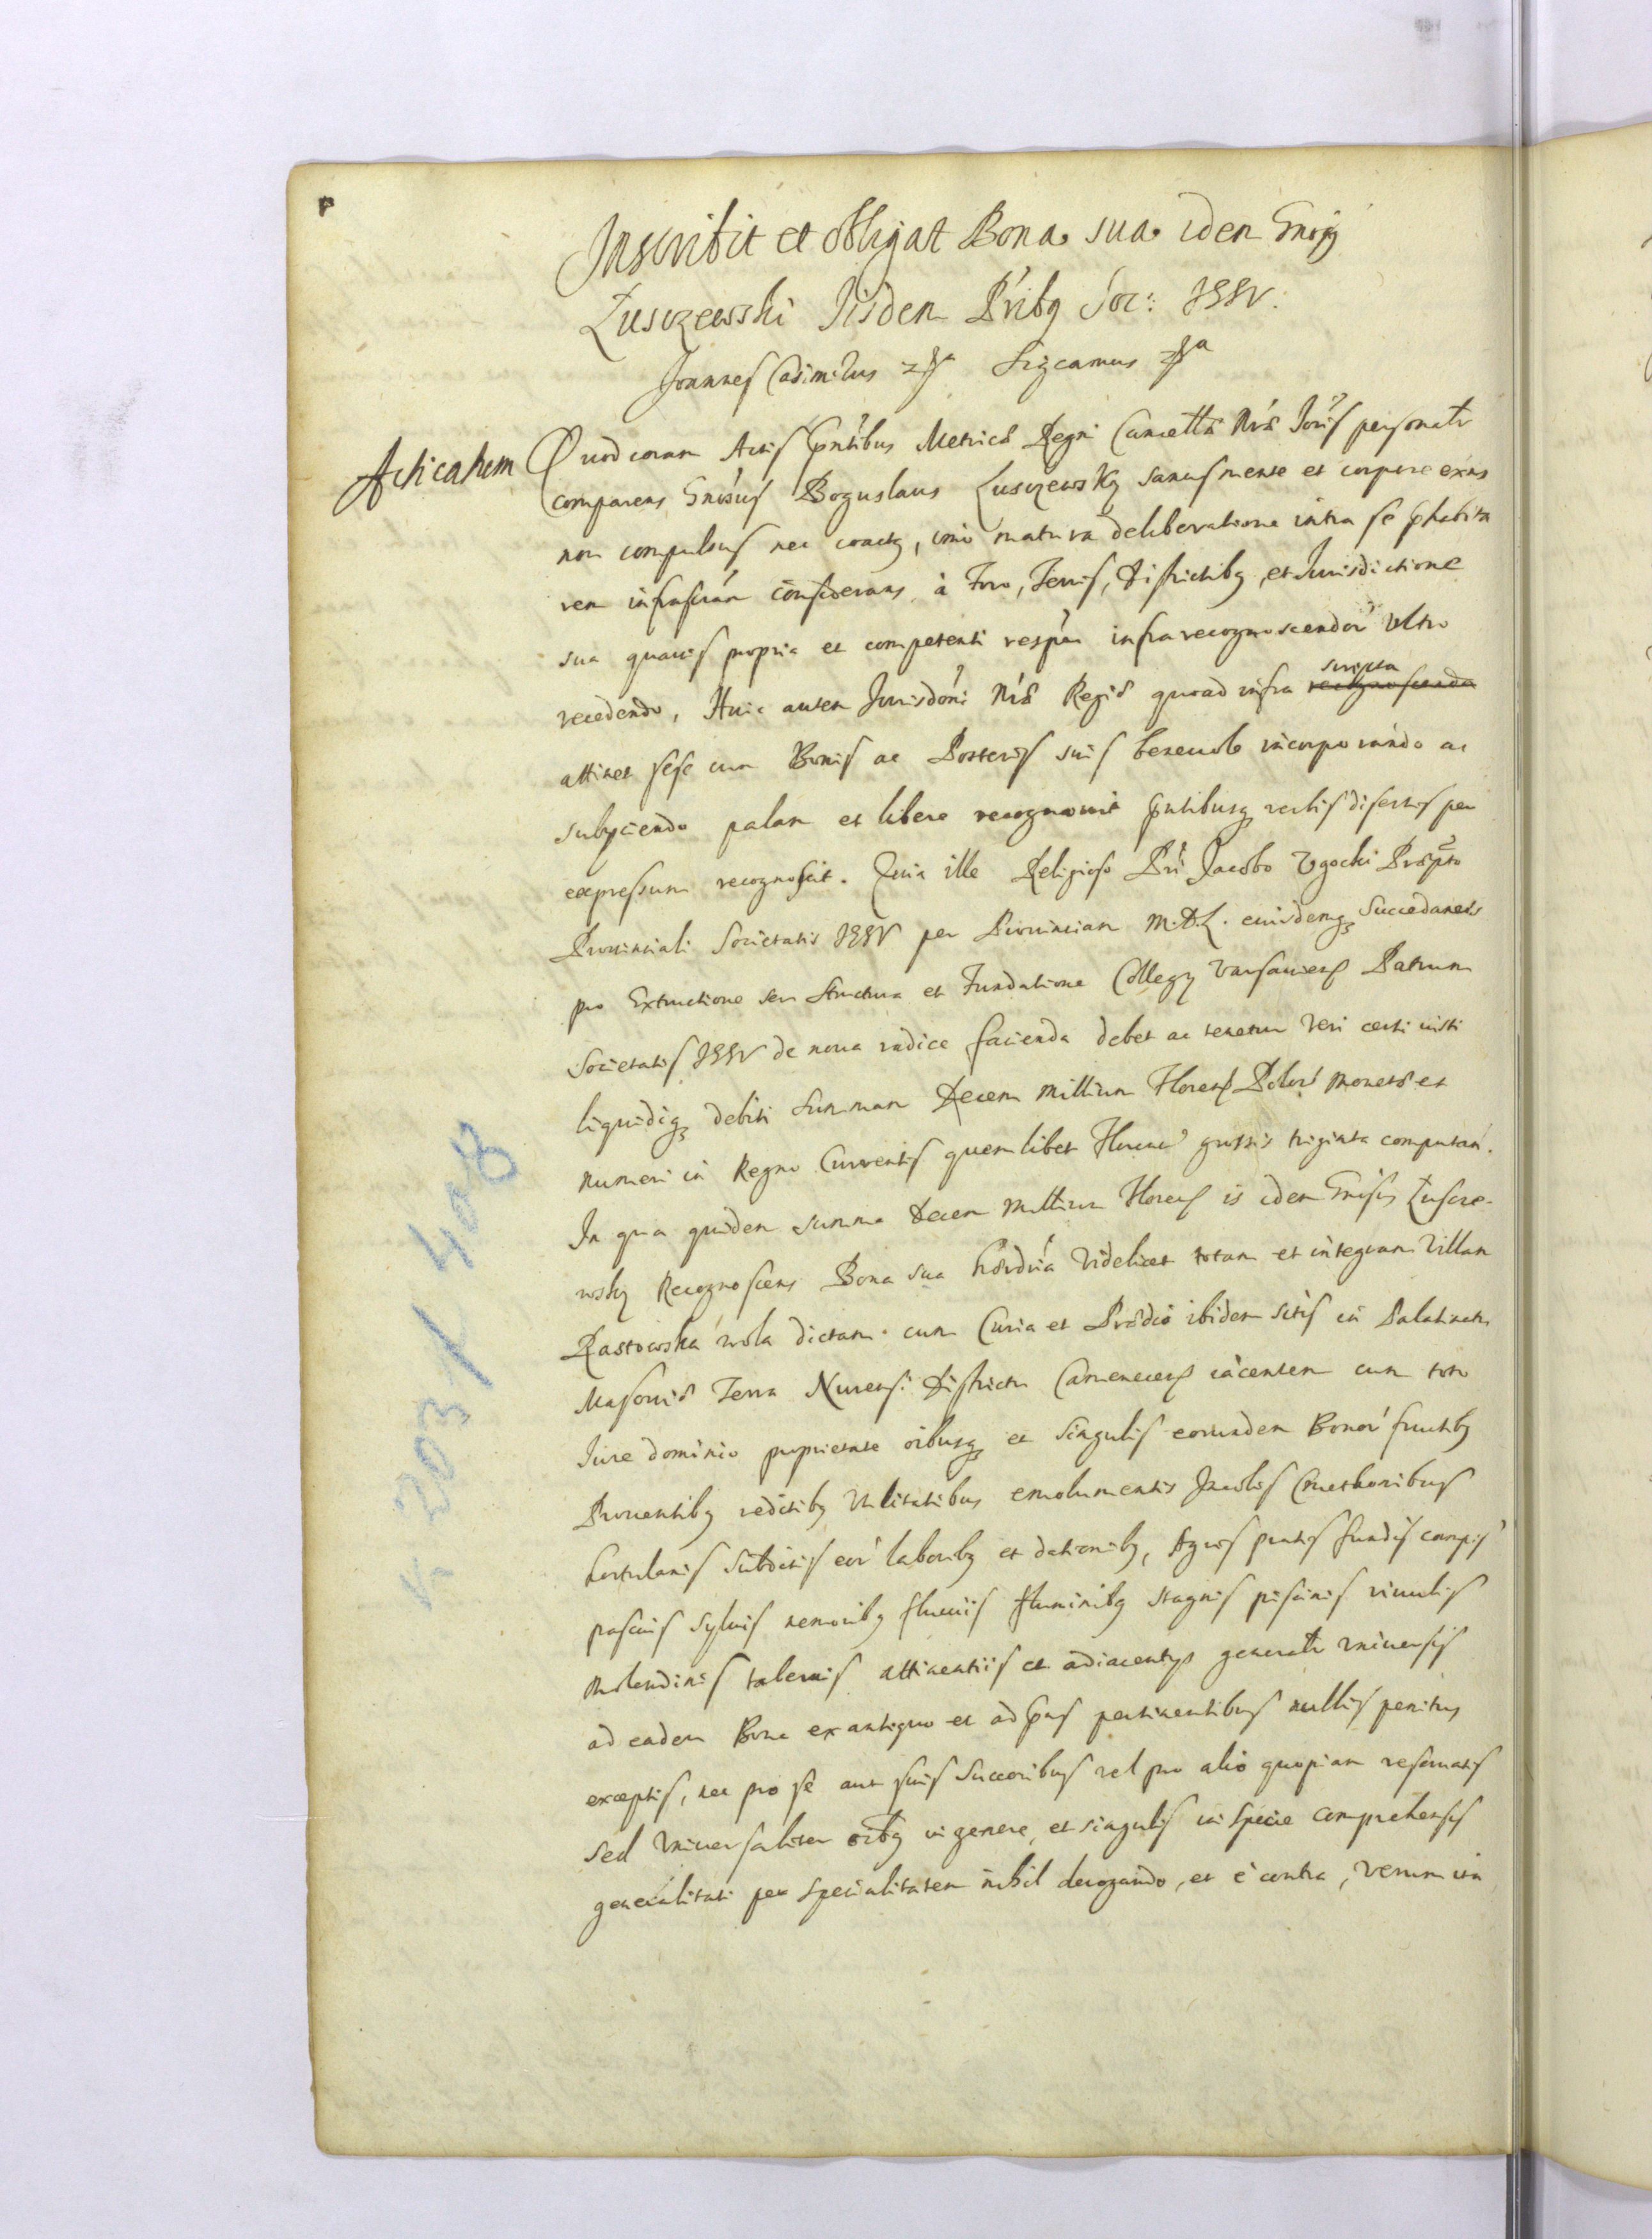 Inscribit et obligat Bona sua idem Gnosus
Łusczewski Iisdem Pribq Soc: IESV.
Joannes Casimirus etca Sigcamus etca
Acticatum
Quod coram Actis pntibus Metrices Regni Cancellae Nrae Maioris personalr
comparens Gnosus Boguslaus Łusczewsky sanus mente et corpore exns
non compulsus nec coactq, imo matura deliberatione intra se phabita
rem infrascram considerans à Foro, Terris, Districtibq, et Jurisdictione
sua quavis propria et competenti respu infra recognoscendor ultro
recedendo, Huic autem Jurisdoni Nrae Regiae quoad infra scripta recognoscenda
attinet sese cum Bonis ac Posteris suis benevole incorporando ac
subyciendo palam et libere recognovit pntibusq verbis disertis per
expressum recognoscit. Quia ille Religioso Pri Jacobo Ugocki Praepto
Provinciali Societatis IESV per Provinciam M.D.L. eiusdemq Succedaneis
pro Extructione seu structura et Fundatione Collegy Varsaviens Patrum
Societatis IESV de nova radice facienda debet ac tenetur veri certi iusti
liquidiq debiti summam Decem millium Florens Polonor monetae et
numeri in Regno Currentis quemlibet Florenu grossis triginta computan.
In qua quidem summa Decem Millium Florens is idem Gnosus Łuscze-
wsky Recognoscens Bona sua hereditria videlicet totam et integram Villam
Rastowska wola dictam cum Curia et Praedio ibidem sitis in Palatinatu
Masoviae Terra Nurensi Districtu Camenecens iacentem cum toto
Jure dominio proprietate oibusq et singulis eorundem Bonor fructibq
Proventibq reditibq utilitatibus emolumentis Incolis Cmethonibus
hortulanis subditis eor laboribq et dationibq, Agris pratis fundis campis
pascuis sylvis nemoribq fluviis fluminibq stagnis piscinis rivulis
molendinis tabernis attinentiis et adiacentys generalr universis
ad eadem Bona ex antiquo et ad pns pertinentibus nullis penitus
exceptis, nec pro se aut suis Succoribus vel pro alio quopiam reservatis
sed universaliter oibq in genere, et singulis in specie comprehensis
generalitati per specialitatem nihil derogando, et è contra, verum ita
K 203 / 408